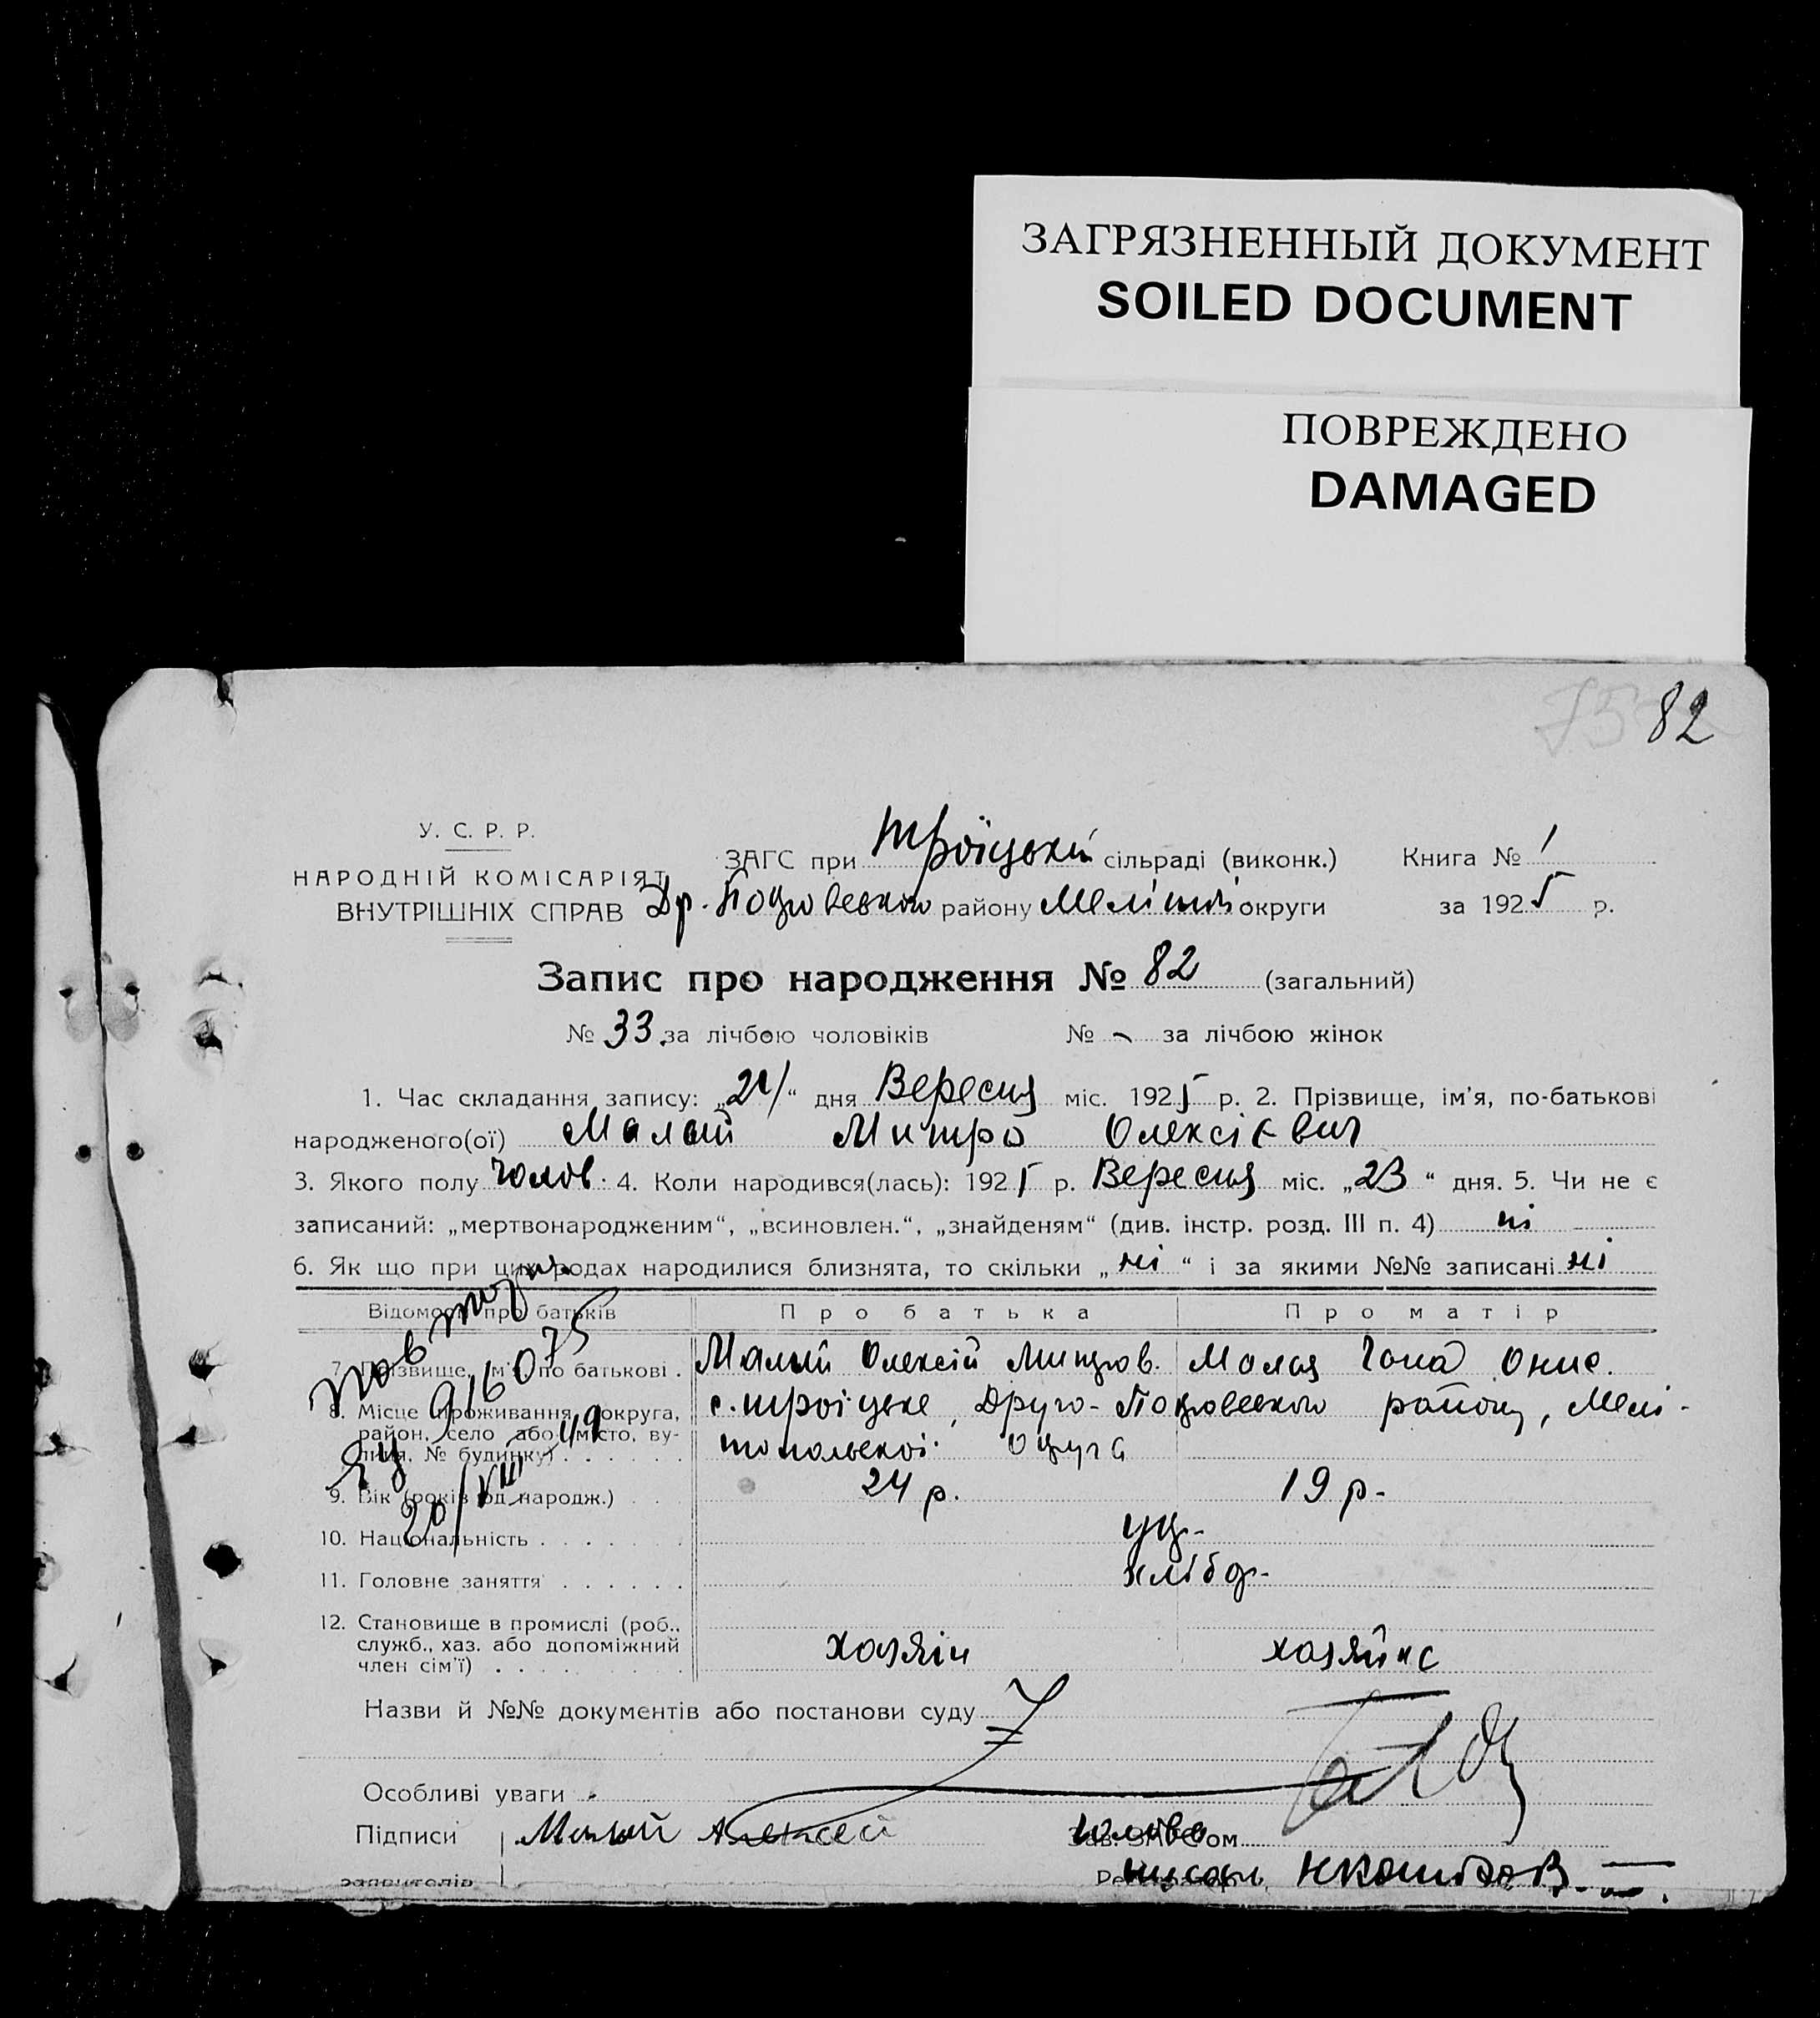 ЗАГРЯЗНЕННЫЙ ДОКУМЕНТ
SOILED DOCUMENT
ПОВРЕЖДЕНО
DAMAGED
75 82
У. С. Р. Р.
НАРОДНІЙ КОМІСАРІЯТ
ВНУТРІШНІХ СПРАВ
ЗАГС при Троїцькій сільраді (виконк.) Книга № 1
Др. Покровського району Меліт округи за 1925 р.
Запис про народження № 82 (загальний)
№ 33 за лічбою чоловіків № - за лічбою жінок
1. Час складання запису: „ “ дня Вересня міс. 1925 р. 2. Прізвище, ім'я, по-батькові
народженого(ої) Малый Митро Олексієвич
3. Якого полу чолов. 4. Коли народився(лась): 1925 р. Вересня міс. „23“ дня. 5. Чи не є
записаний: „мертвонародженим“, „всиновлен.“, „знайденям“ (див. інстр. розд. III п. 4) ні
6. Як що при цих родах народилися близнята, то скільки „ні“ і за якими №№ записані ні
Відомості про батьків Про батька Про матір
7. Прізвище, ім'я, по батькові . Малый Олексій Митров. Малая Гана Онис.
8. Місце проживання (округа, район, село або місто, вулиця, № будинку) . . . . . . с. Троїцьке, Друго-Покровського району, Мелі-
топольскої округа
9. Вік (років од народж.) . . 24 р. 19 р.
10. Національність . . . . . . . укр.
11. Головне заняття . . . . . . хлібор.
12. Становище в промислі (роб., служб., хаз. або допоміжний член сім'ї) . . . . . . . хазяїн хазяйка
повтор
ЯЦ 916075
20/VIII 49
Назви й №№ документів або постанови суду
Особливі уваги
Підписи Малый Алексей Зав. ЗАГС'ом Голова
заявителів Реєстратор